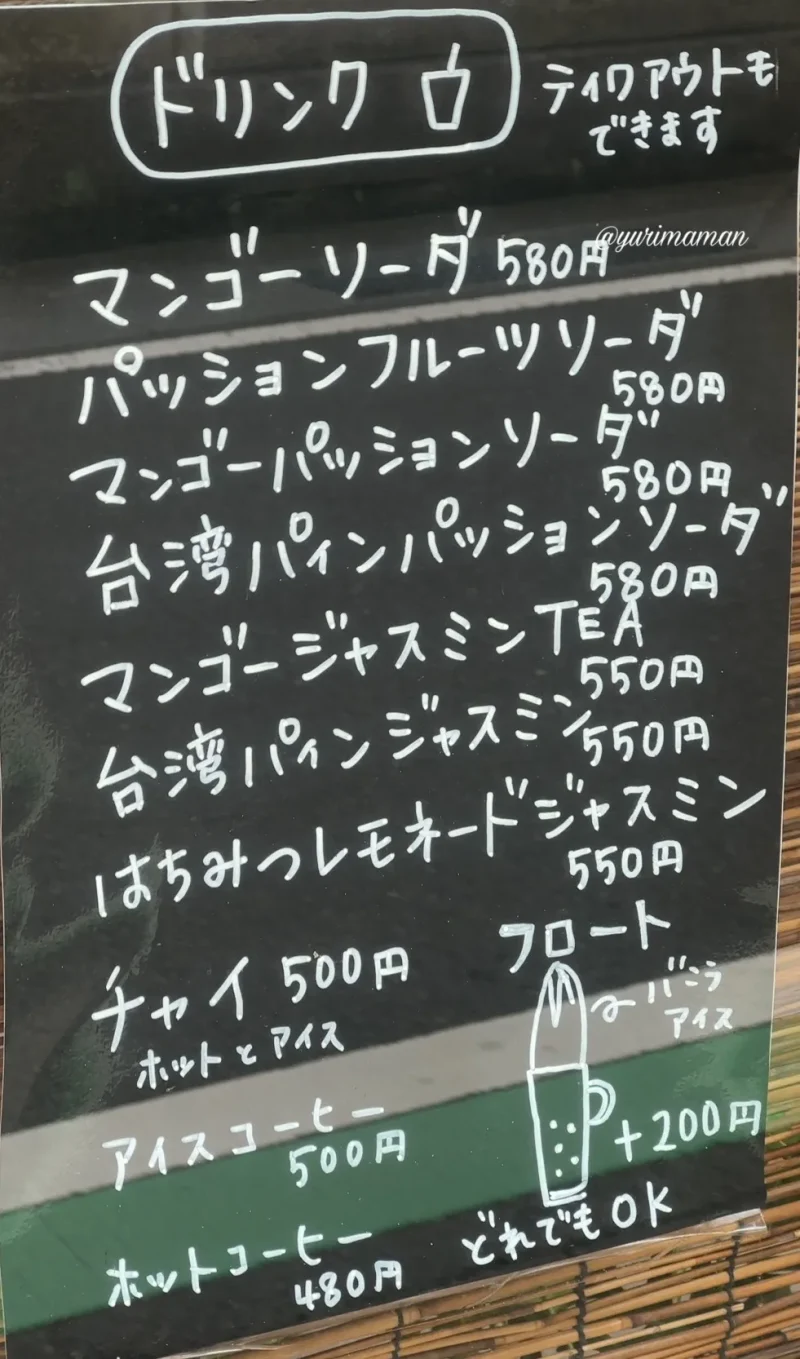 ドリンク
ティクアウトモ
できます
@yurimaman
マンゴーソーダ 580円
パッションフルーツソーダ
580円
マンゴーパッションソーダ
580円
台湾パインパッションソーダ
580円
マンゴージャスミンTEA
550円
台湾パインジャスミン
550円
はちみつレモネードジャスミン
550円
チャイ 500円
ホットとアイス
アイスコーヒー
500円
ホットコーヒー
480円
フロート
バニラ
アイス
+200円
どれでもOK